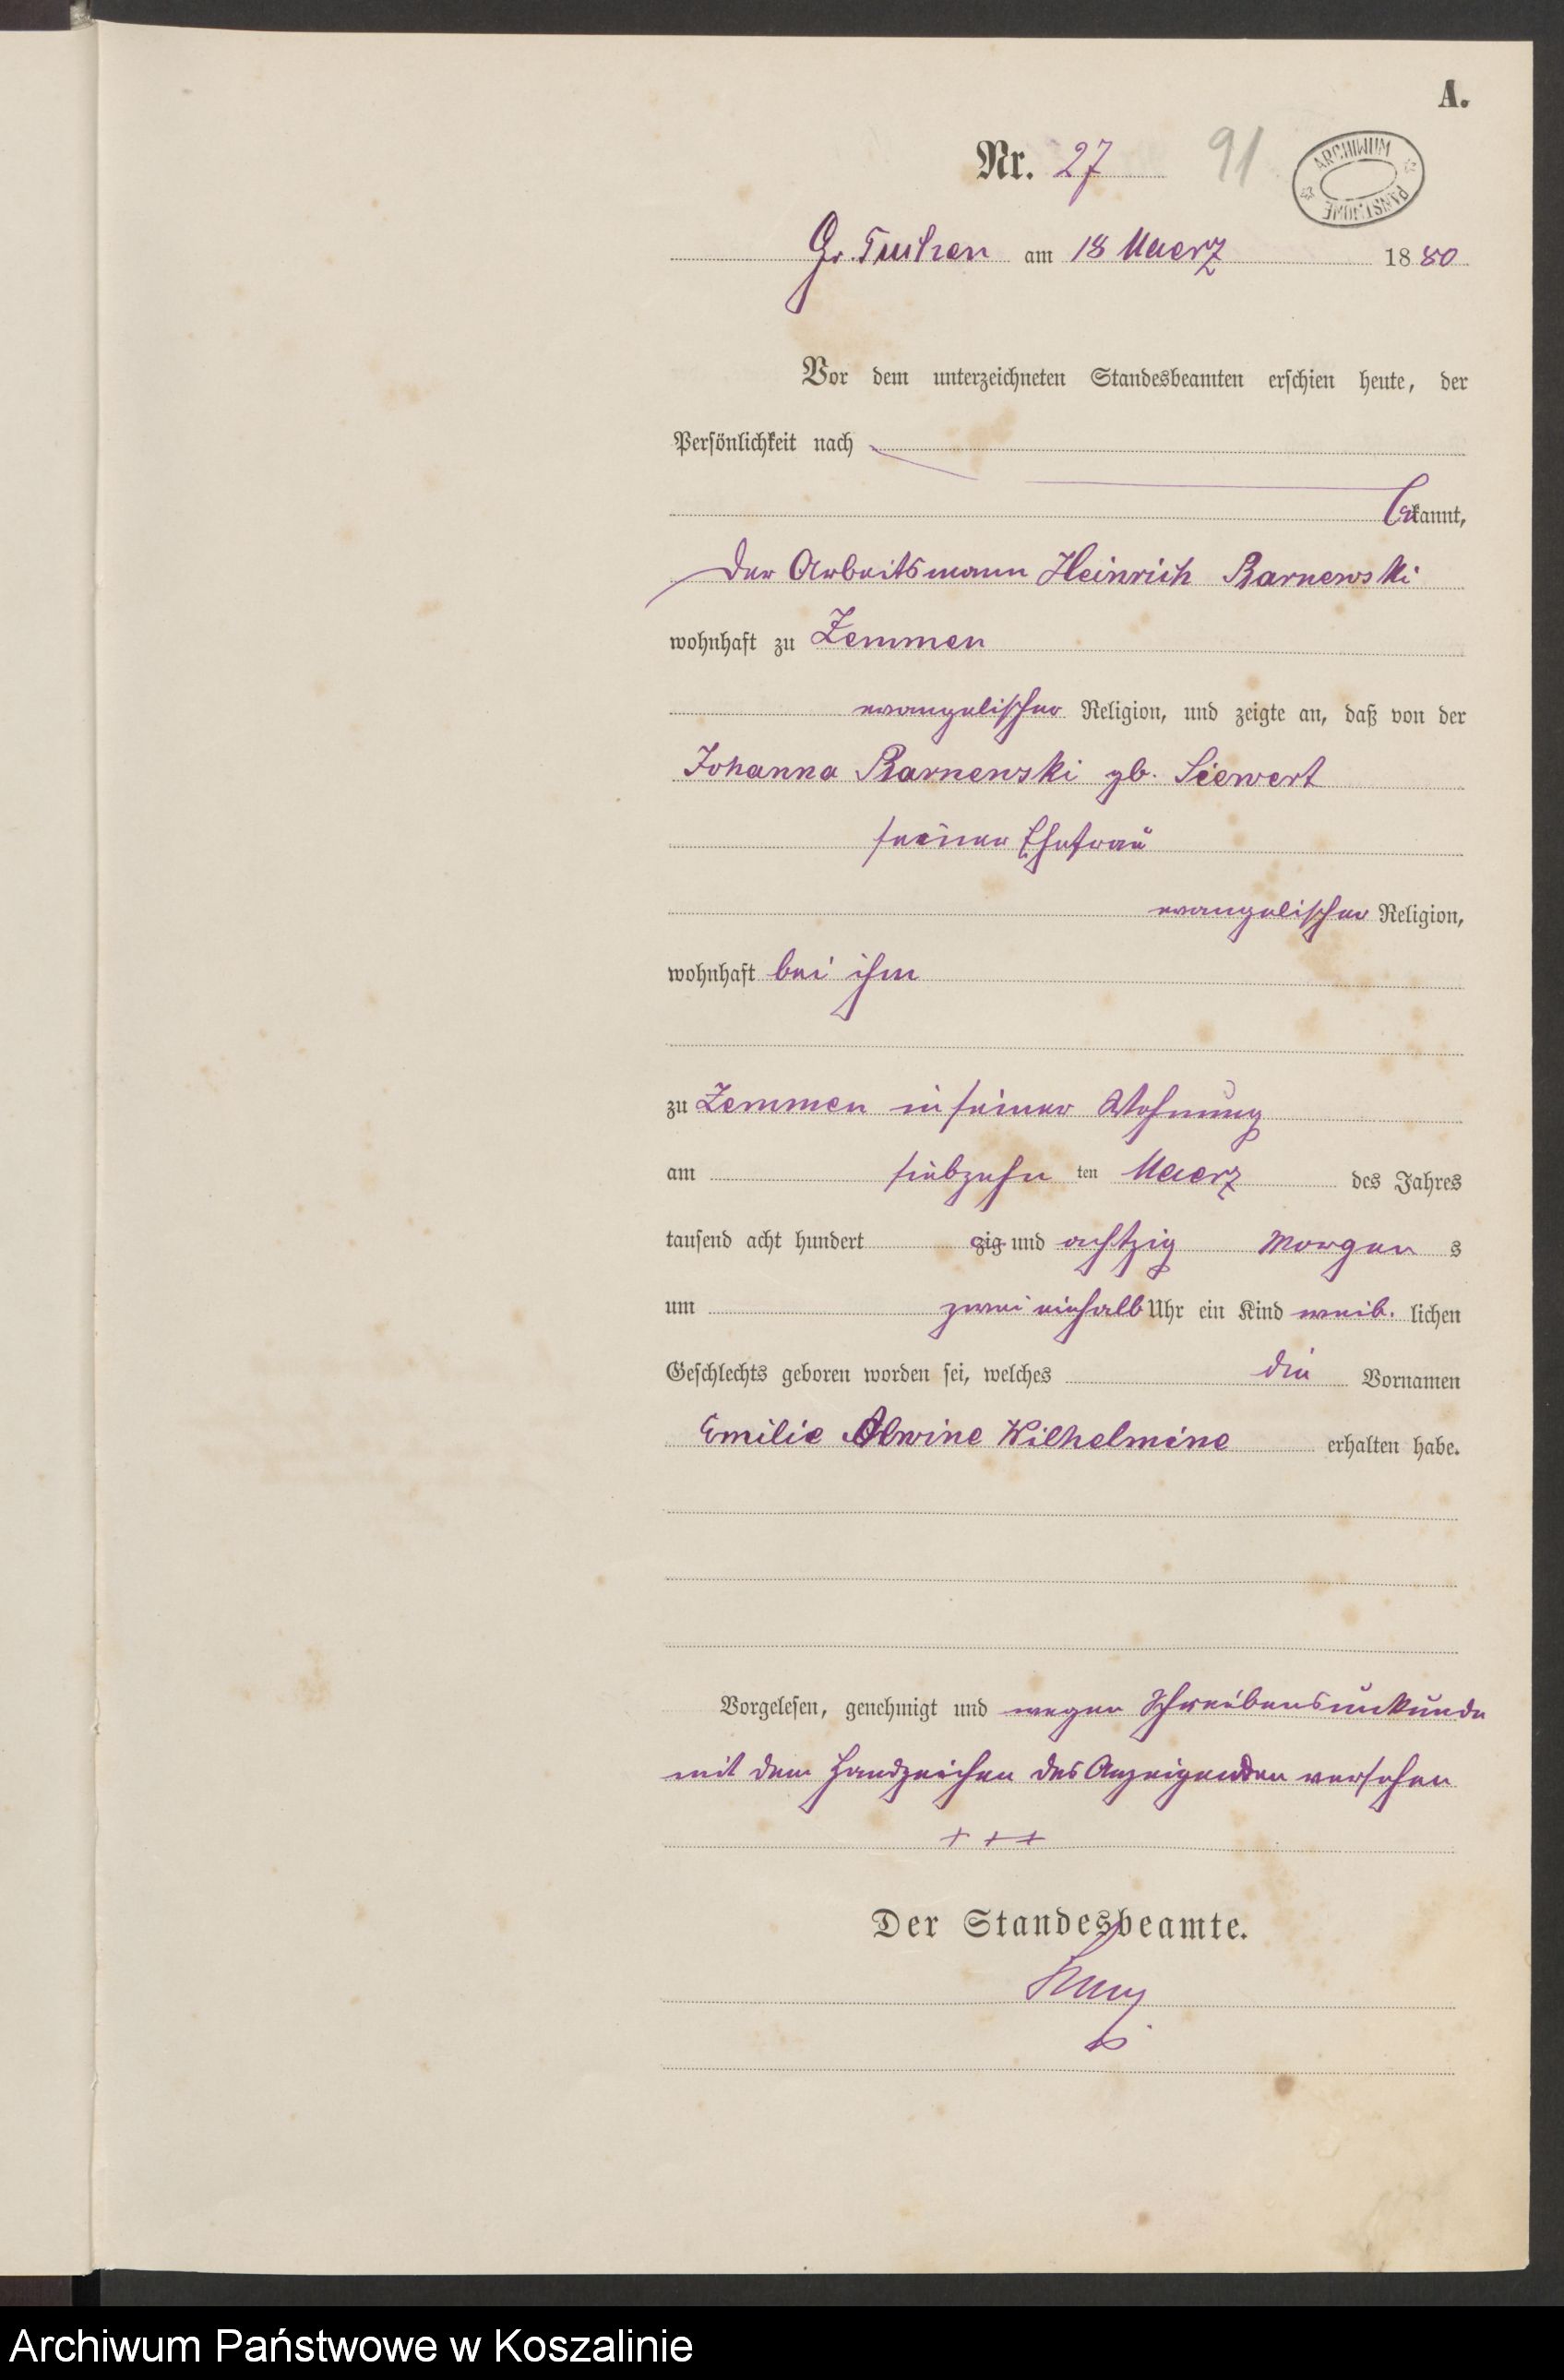 A.
Nr. 27 91
ARCHIWUM PAŃSTWOWE
Gr. Tuchen am 18 Maerz 1880
Vor dem unterzeichneten Standesbeamten erschien heute, der
Persönlichkeit nach
kannt,
der Arbeitsmann Heinrich Barnewski
wohnhaft zu Zemmen
evangelischer Religion, und zeigte an, daß von der
Johanna Barnewski gb. Siewert
seiner Ehefrau
evangelischer Religion,
wohnhaft bei ihm
zu Zemmen in seiner Wohnung
am siebzehn ten Maerz des Jahres
tausend acht hundert zig und achtzig Morgen s
um zwei einhalb Uhr ein Kind weib. lichen
Geschlechts geboren worden sei, welches die Vornamen
Emilie Alwine Wilhelmine erhalten habe.
Vorgelesen, genehmigt und wegen Schreibensunkunde
mit dem Handzeichen des Anzeigenden versehen
+ + +
Der Standesbeamte.
Archiwum Państwowe w Koszalinie